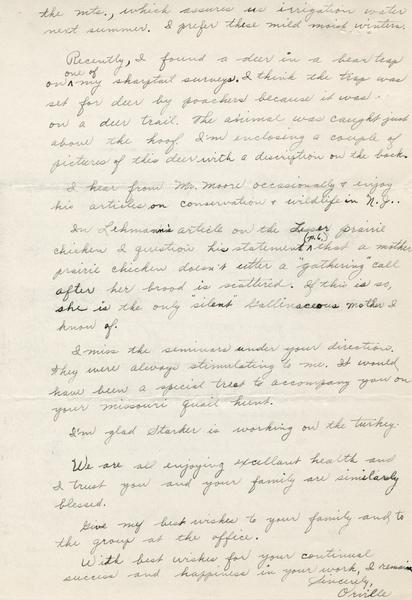 the mts., which assures us irrigation water
next summer. I prefer these mild moist winters.
Recently, I found a deer in a bear trap
one of
on ^ my sharptail surveys. I think the trap was
set for deer by poachers because it was
on a deer trail. The animal was caught just
above the hoof. I'm enclosing a couple of
pictures of this deer with a discription on the back.
I hear from Mr. Moore occasionally & enjoy
his articles on conservation & wildlife in N.J..
In Lehmann's article on the Lesser prairie
(p.6)
chicken I question his statement ^ that a mother
prairie chicken doesn't utter a "gathering" call
after her brood is scattered. If this is so,
she is the only "silent" Gallinaceous mother I
know of.
I miss the seminars under your direction.
They were always stimulating to me. It would
have been a special treat to accompany you on
your missouri quail hunt.
I'm glad Starker is working on the turkey.
We are all enjoying excellant health and
I trust you and your family are similarly
blessed.
Give my best wishes to your family and to
the group at the office.
With best wishes for your continual
success and happiness in your work, I remain
Sincerely,
Orville